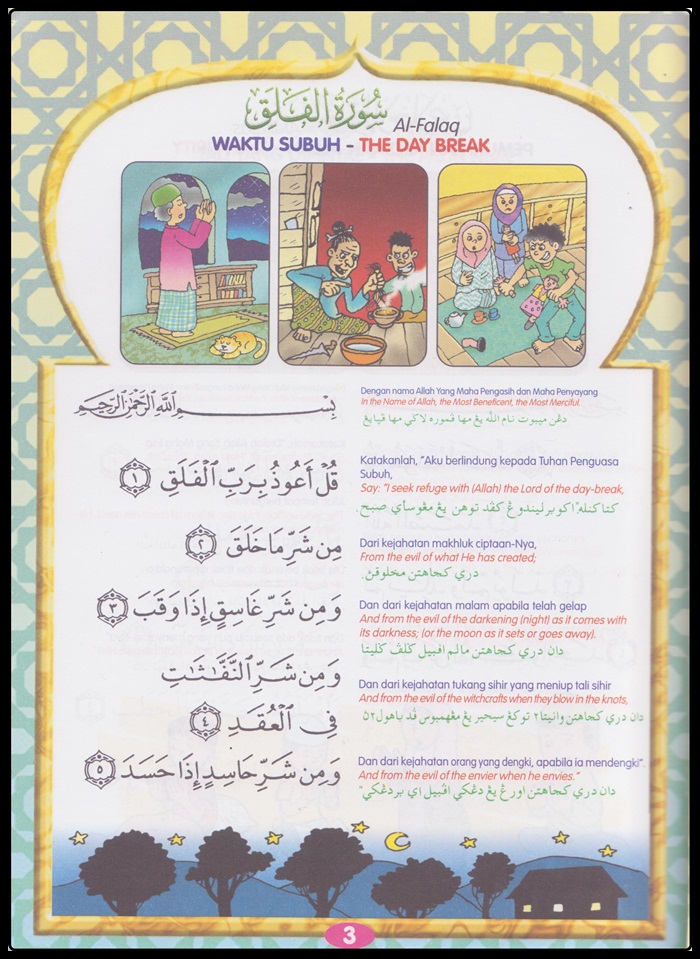 سُورَةُ الفَلَقِ Al-Falaq
WAKTU SUBUH - THE DAY BREAK
بِسْمِ اللَّهِ الرَّحْمَٰنِ الرَّحِيمِ
Dengan nama Allah Yang Maha Pengasih dan Maha Penyayang
In the Name of Allah, the Most Beneficent, the Most Merciful.
دڠن ميبوت نام الله يڠ مها ڤموره لاڬي مها ڤڽايڠ
قُلْ أَعُوذُ بِرَبِّ ٱلْفَلَقِ ١
Katakanlah, "Aku berlindung kepada Tuhan Penguasa
Subuh,
Say: "I seek refuge with (Allah) the Lord of the day-break,
كتاكنله،"اكو برليندوڠ كڤد توهن يڠ مڠوساي صبح
مِن شَرِّ مَا خَلَقَ ٢
Dari kejahatan makhluk ciptaan-Nya,
From the evil of what He has created;
دري كجاهتن مخلوقن.
وَمِن شَرِّ غَاسِقٍ إِذَا وَقَبَ ٣
Dan dari kejahatan malam apabila telah gelap
And from the evil of the darkening (night) as it comes with
its darkness; (or the moon as it sets or goes away).
دان دري كجاهتن مالم اڤبيل ڬلڤ ڬليتا
وَمِن شَرِّ ٱلنَّفَّٰثَٰتِ
فِى ٱلْعُقَدِ ٤
Dan dari kejahatan tukang sihir yang meniup tali sihir
And from the evil of the witchcrafts when they blow in the knots,
دان دري كجاهتن وانيتا٢ توكڠ سيحير يڠ مڠهمبوس ڤد باهول٢ن
وَمِن شَرِّ حَاسِدٍ إِذَا حَسَدَ ٥
Dan dari kejahatan orang yang dengki, apabila ia mendengki".
And from the evil of the envier when he envies."
دان دري كجاهتن اورڠ يڠ دڠكي اڤبيل اي بردڠكي"
3